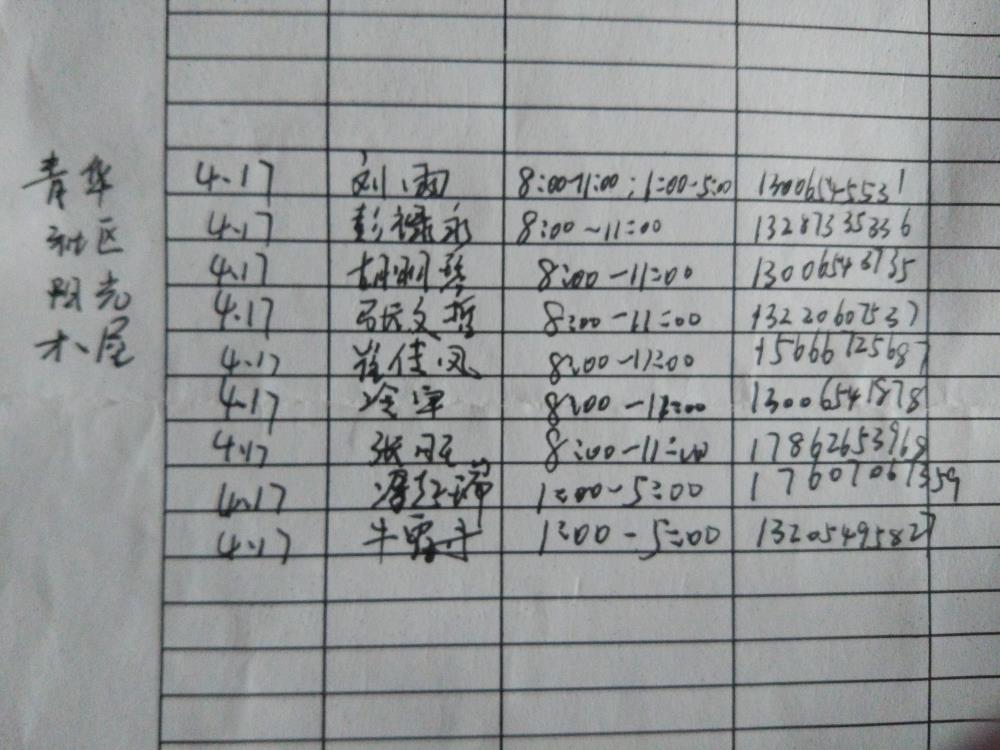 青华
社区
阳光
木屋
4.17 刘雨 8:00-11:00；1:00-5:00 13006545531
4.17 彭禄永 8:00~11:00 13287335336
4.17 8:00-11:00 13006543735
4.17 文哲 8:00-11:00 13220607537
4.17 崔佳凤 8:00-11:00 15666125687
4.17 8:00-11:00 13006541878
4.17 张 8:00-11:00 17862653968
4.17 1:00-5:00 17607067359
4.17 牛 1:00-5:00 13205495827